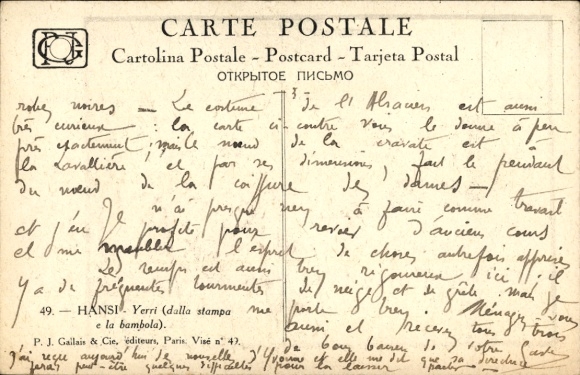 CARTE POSTALE
Cartolina Postale - Postcard - Tarjeta Postal
ОТКРЫТОЕ ПИСЬМО
robes noires — Le costume de l'Alsacien est aussi
très curieux : la carte ci-contre vous le donne à peu
près exactement ; mais le nœud de la cravate est à
"la Lavallière", et par ses dimensions, fait le pendant
du nœud de la coiffure des dames —
Je n'ai presque rien à faire comme travail
et j'en profite pour revoir d'anciens cours
et me l'esprit de choses autrefois apprises
Le temps est aussi très rigoureux ici : il
y a de fréquentes tourmentes de neige et de grêle, mais je
me porte bien. Ménagez-vous
aussi et recevez tous trois
de bons baisers de votre
49. — HANSI - Yerri (dalla stampa
e la bambola).
P. J. Gallais & Cie, éditeurs, Paris. Visé n° 49.
J'ai reçu aujourd'hui des nouvelles d'Yvonne et elle me dit que sa directrice
peut-être quelques difficultés pour la laisser partir —